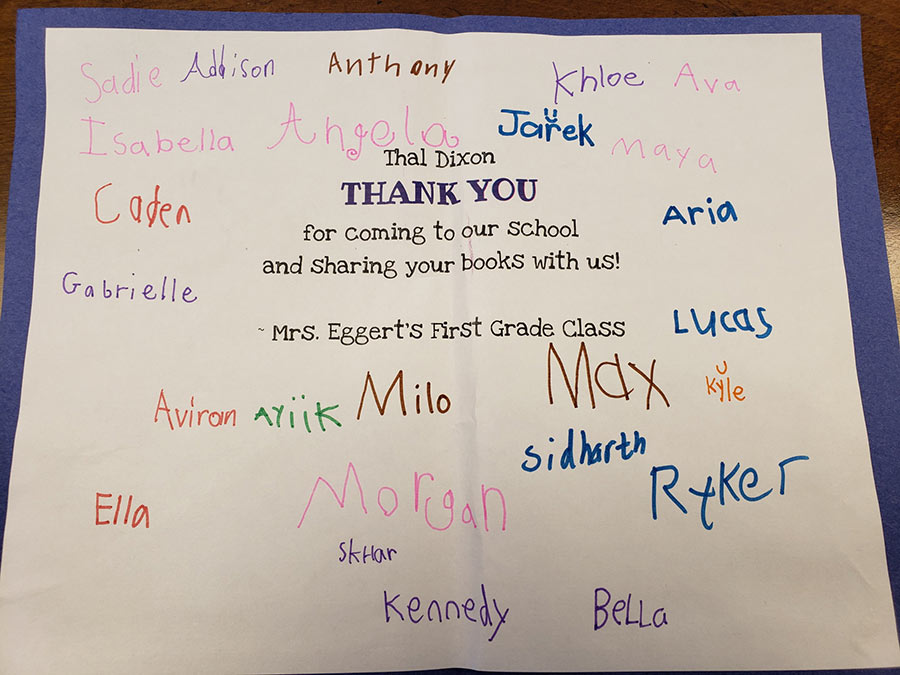 Sadie Addison Anthony Khloe Ava
Isabella Angela Jařek Maya
Thal Dixon
THANK YOU
Caden Aria
for coming to our school
and sharing your books with us!
Gabrielle
~ Mrs. Eggert's First Grade Class Lucas
Aviran Ayiik Milo Max Kyle
Sidharth
Ella Morgan Ryker
SkHar
Kennedy BeLLa